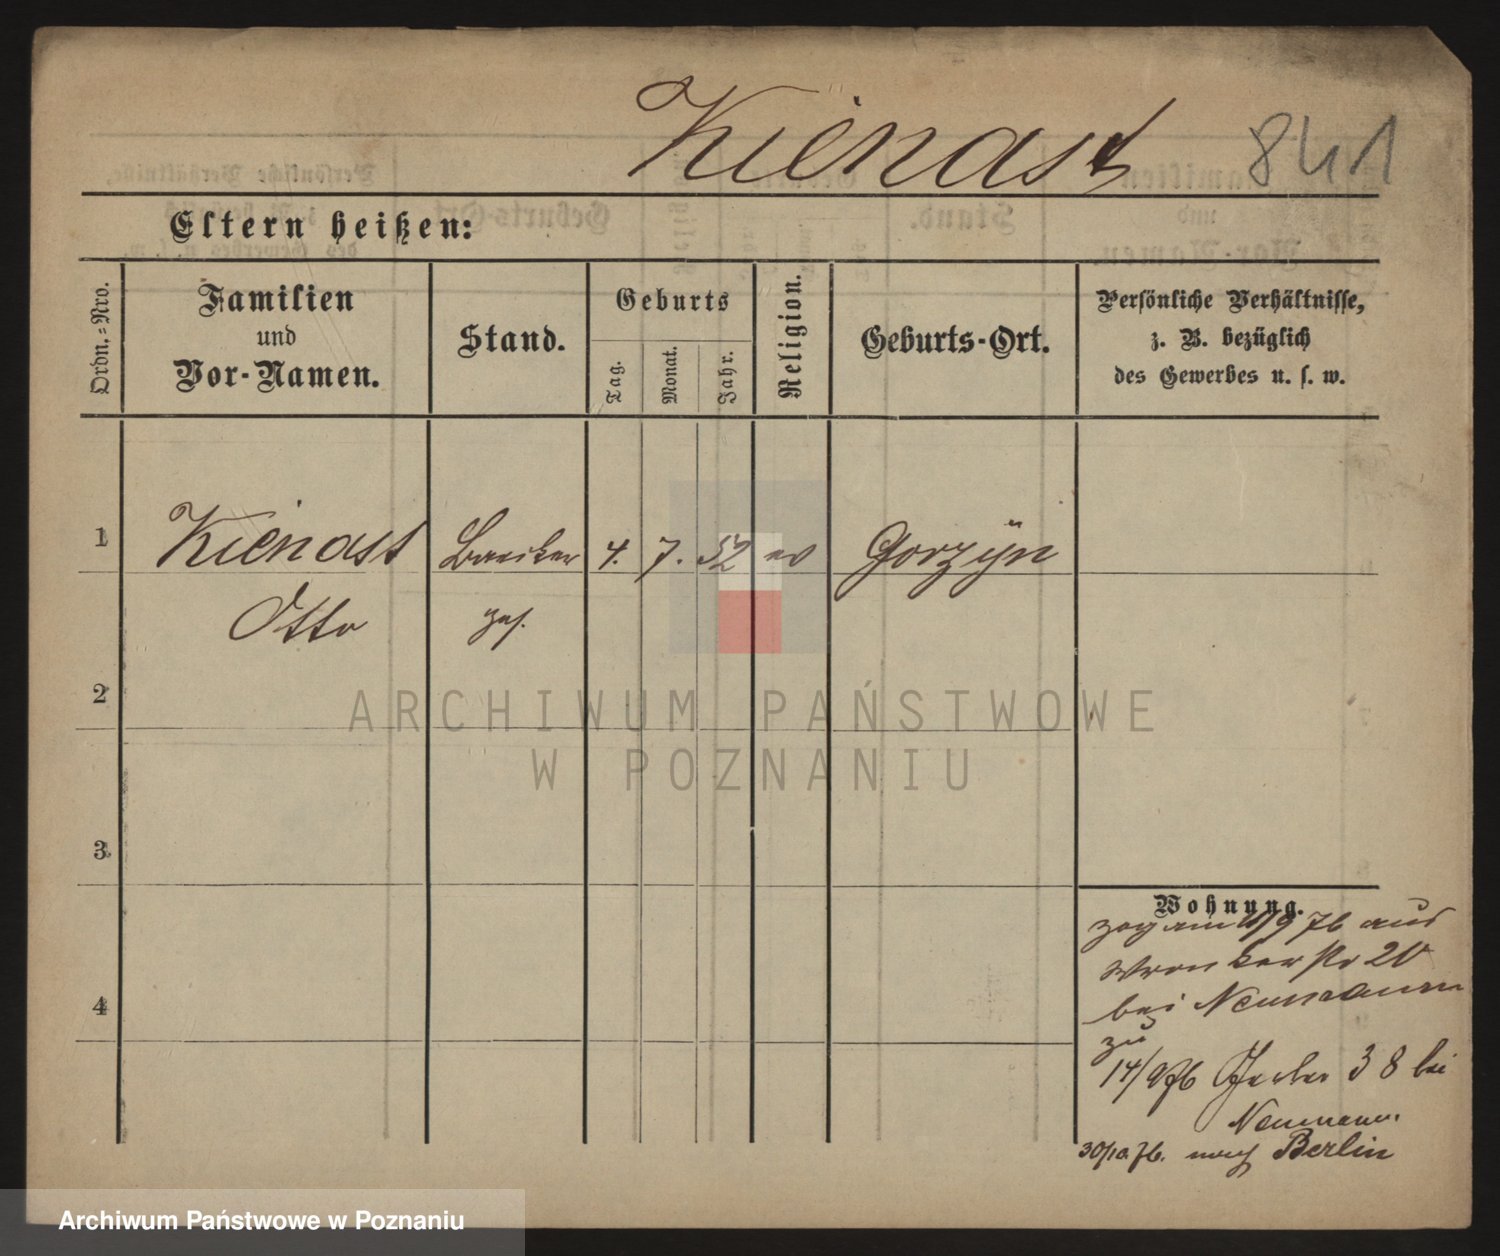 Kienast 841
Eltern heißen:
Ordn.=Nro.
Familien
und
Vor-Namen.
Stand.
Geburts
Tag.
Monat.
Jahr.
Religion.
Geburts-Ort.
Persönliche Verhältnisse,
z. B. bezüglich
des Gewerbes u. s. w.
1 Kienast Baecker 4. 7. 52 ev Gorzÿn
Otto ges.
2
3
4
Wohnung.
zog am 11/9 76 aus
Wronkerstr 20
bei Neumann
zu
14/9 76 Gerber 38 bei
Neumann.
30/10.76. nach Berlin
ARCHIWUM PAŃSTWOWE
W POZNANIU
Archiwum Państwowe w Poznaniu